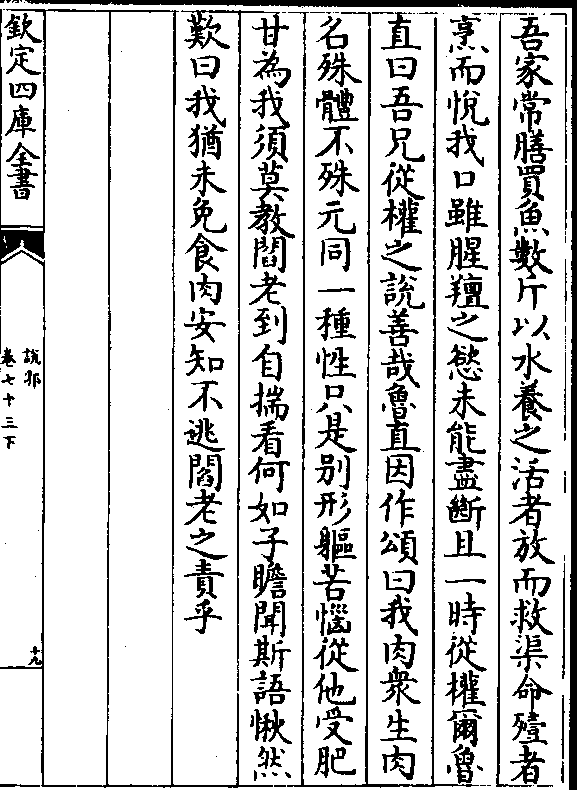 吾家常膳買魚數斤以水養之活者放而救渠命殪者
烹而悅我口雖腥羶之慾未能盡斷且一時從權爾魯
直曰吾兄從權之說善哉魯直因作頌曰我肉衆生肉
名殊體不殊元同一種性只是别形軀苦惱從他受肥
甘為我須莫教閻老到自揣看何如子瞻聞斯語愀然
歎曰我猶未免食肉安知不逃閻老之責乎
欽定四庫全書
說郛
卷七十三下
十九